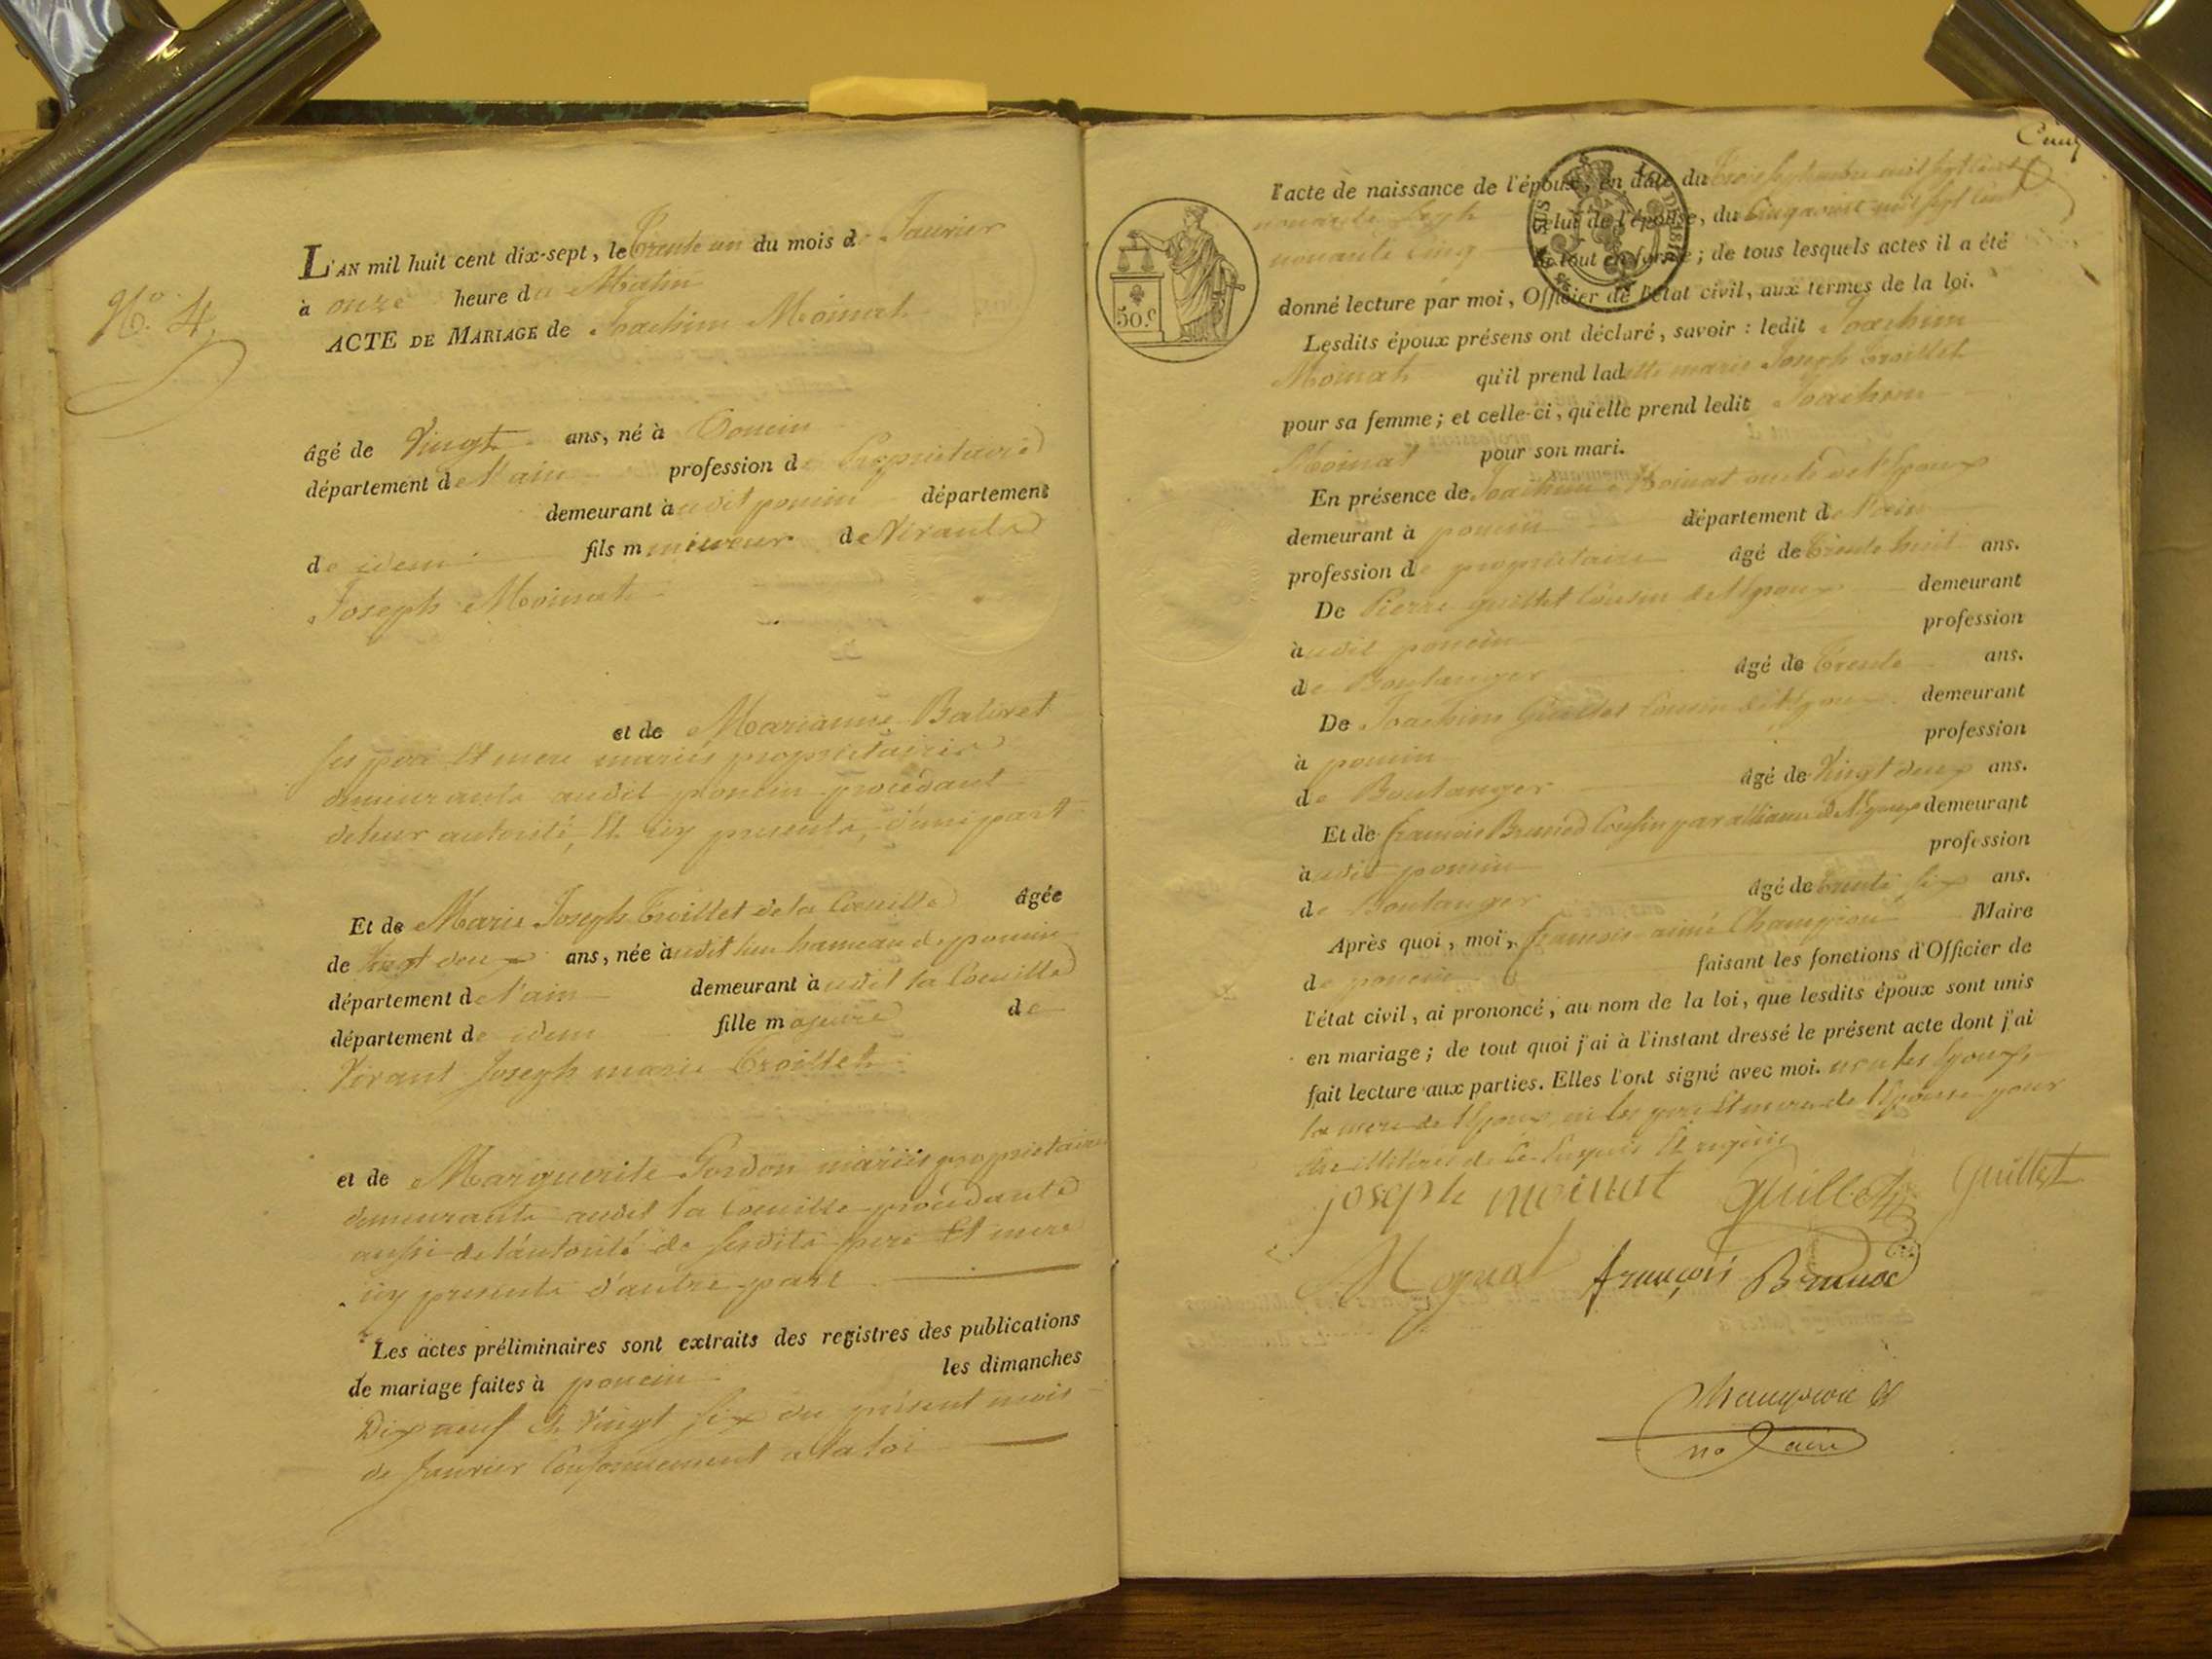 N.o 4
L'AN mil huit cent dix-sept, le Trente un du mois de Janvier
à onze heure du Matin
ACTE DE MARIAGE de Joachim Moinat
âgé de Vingt ans, né à Poncin
département de l'ain profession de Proprietaire
demeurant à udit poncin département
de idem fils m mineur de Vivants
Joseph Moinat
et de Marianne
ses pere Et mere mariés proprietaires
demeurants audit poncin procedant
de leur autorité, Et icy presents, d'une part
Et de Marie Joseph Troillet de la Coeuille âgée
de Vingt deux ans, née àudit lieu hameau de poncin
département de l'ain demeurant àudit la Coeuille
département de idem fille majeure de
Vivant Joseph marie Troillet
et de Marguerite Gordon mariés proprietaires
demeurants audit la Coeuille procédante
aussi de l'autorité de sesdits pere Et mere
icy presents d'autre part
Les actes préliminaires sont extraits des registres des publications
de mariage faites à poncin les dimanches
Dix neuf Et Vingt six du présent mois
de Janvier Conformement a la loi
Cinq
l'acte de naissance de l'époux, en date du trois septembre mil sept cent
nonante sept celui de l'épouse, du Cinq aoust mil sept cent
nonante cinq le tout en forme; de tous lesquels actes il a été
donné lecture par moi, Officier de l'état civil, aux termes de la loi.
Lesdits époux présens ont déclaré, savoir : ledit Joachim
Moinat qu'il prend ladette marie Joseph Troillet
pour sa femme; et celle-ci, qu'elle prend ledit Joachim
Moinat pour son mari.
En présence de Joachim Moinat oncle de l'Epoux
demeurant à poncin département de l'ain
profession de proprietaire âgé de Trente huit ans.
De Pierre guillet Cousin de l'Epoux demeurant
àudit poncin profession
de Boulanger âgé de Trente ans.
De Joachim Guillet Cousin de l'Epoux demeurant
à poncin profession
de Boulanger âgé de Vingt deux ans.
Et de françois Cousin par alliance de l'Epoux demeurant
àudit poncin profession
de Boulanger âgé de Trente six ans.
Après quoi, moi, françois aimé Champion Maire
de poncin faisant les fonctions d'Officier de
l'état civil, ai prononcé, au nom de la loi, que lesdits époux sont unis
en mariage; de tout quoi j'ai à l'instant dressé le présent acte dont j'ai
fait lecture aux parties. Elles l'ont signé avec moi. non les Epoux,
la mere de l'Epoux, ni les pere Et mere de l'Epouse pour
être illitérés de ce Enquis Et requis
joseph moinat Guillet Guillet
françois
50.c